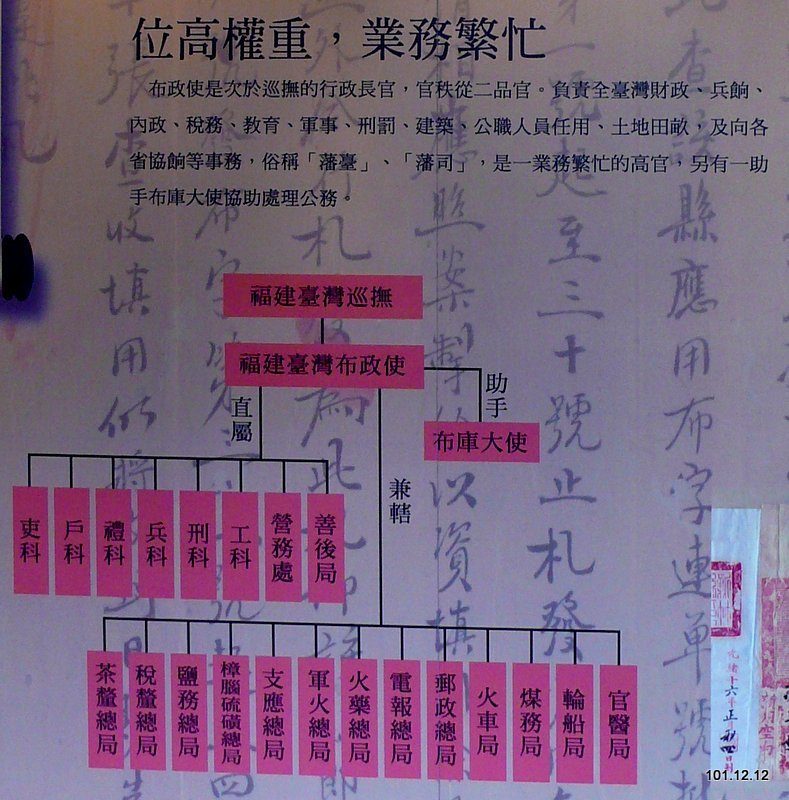 位高權重，業務繁忙
布政使是次於巡撫的行政長官，官秩從二品官。負責全臺灣財政、兵餉、
內政、稅務、教育、軍事、刑罰、建築、公職人員任用、土地田畝，及向各
省協餉等事務，俗稱「藩臺」、「藩司」，是一業務繁忙的高官，另有一助
手布庫大使協助處理公務。
福建臺灣巡撫
福建臺灣布政使
助手
布庫大使
直屬
兼轄
吏科
戶科
禮科
兵科
刑科
工科
營務處
善後局
茶釐總局
稅釐總局
鹽務總局
樟腦硫磺總局
支應總局
軍火總局
火藥總局
電報總局
郵政總局
火車局
煤務局
輪船局
官醫局
此查該縣應用布字連單號
第一號起至三十號止札發
相應照案製
以資填
張查收填用仍將
101.12.12